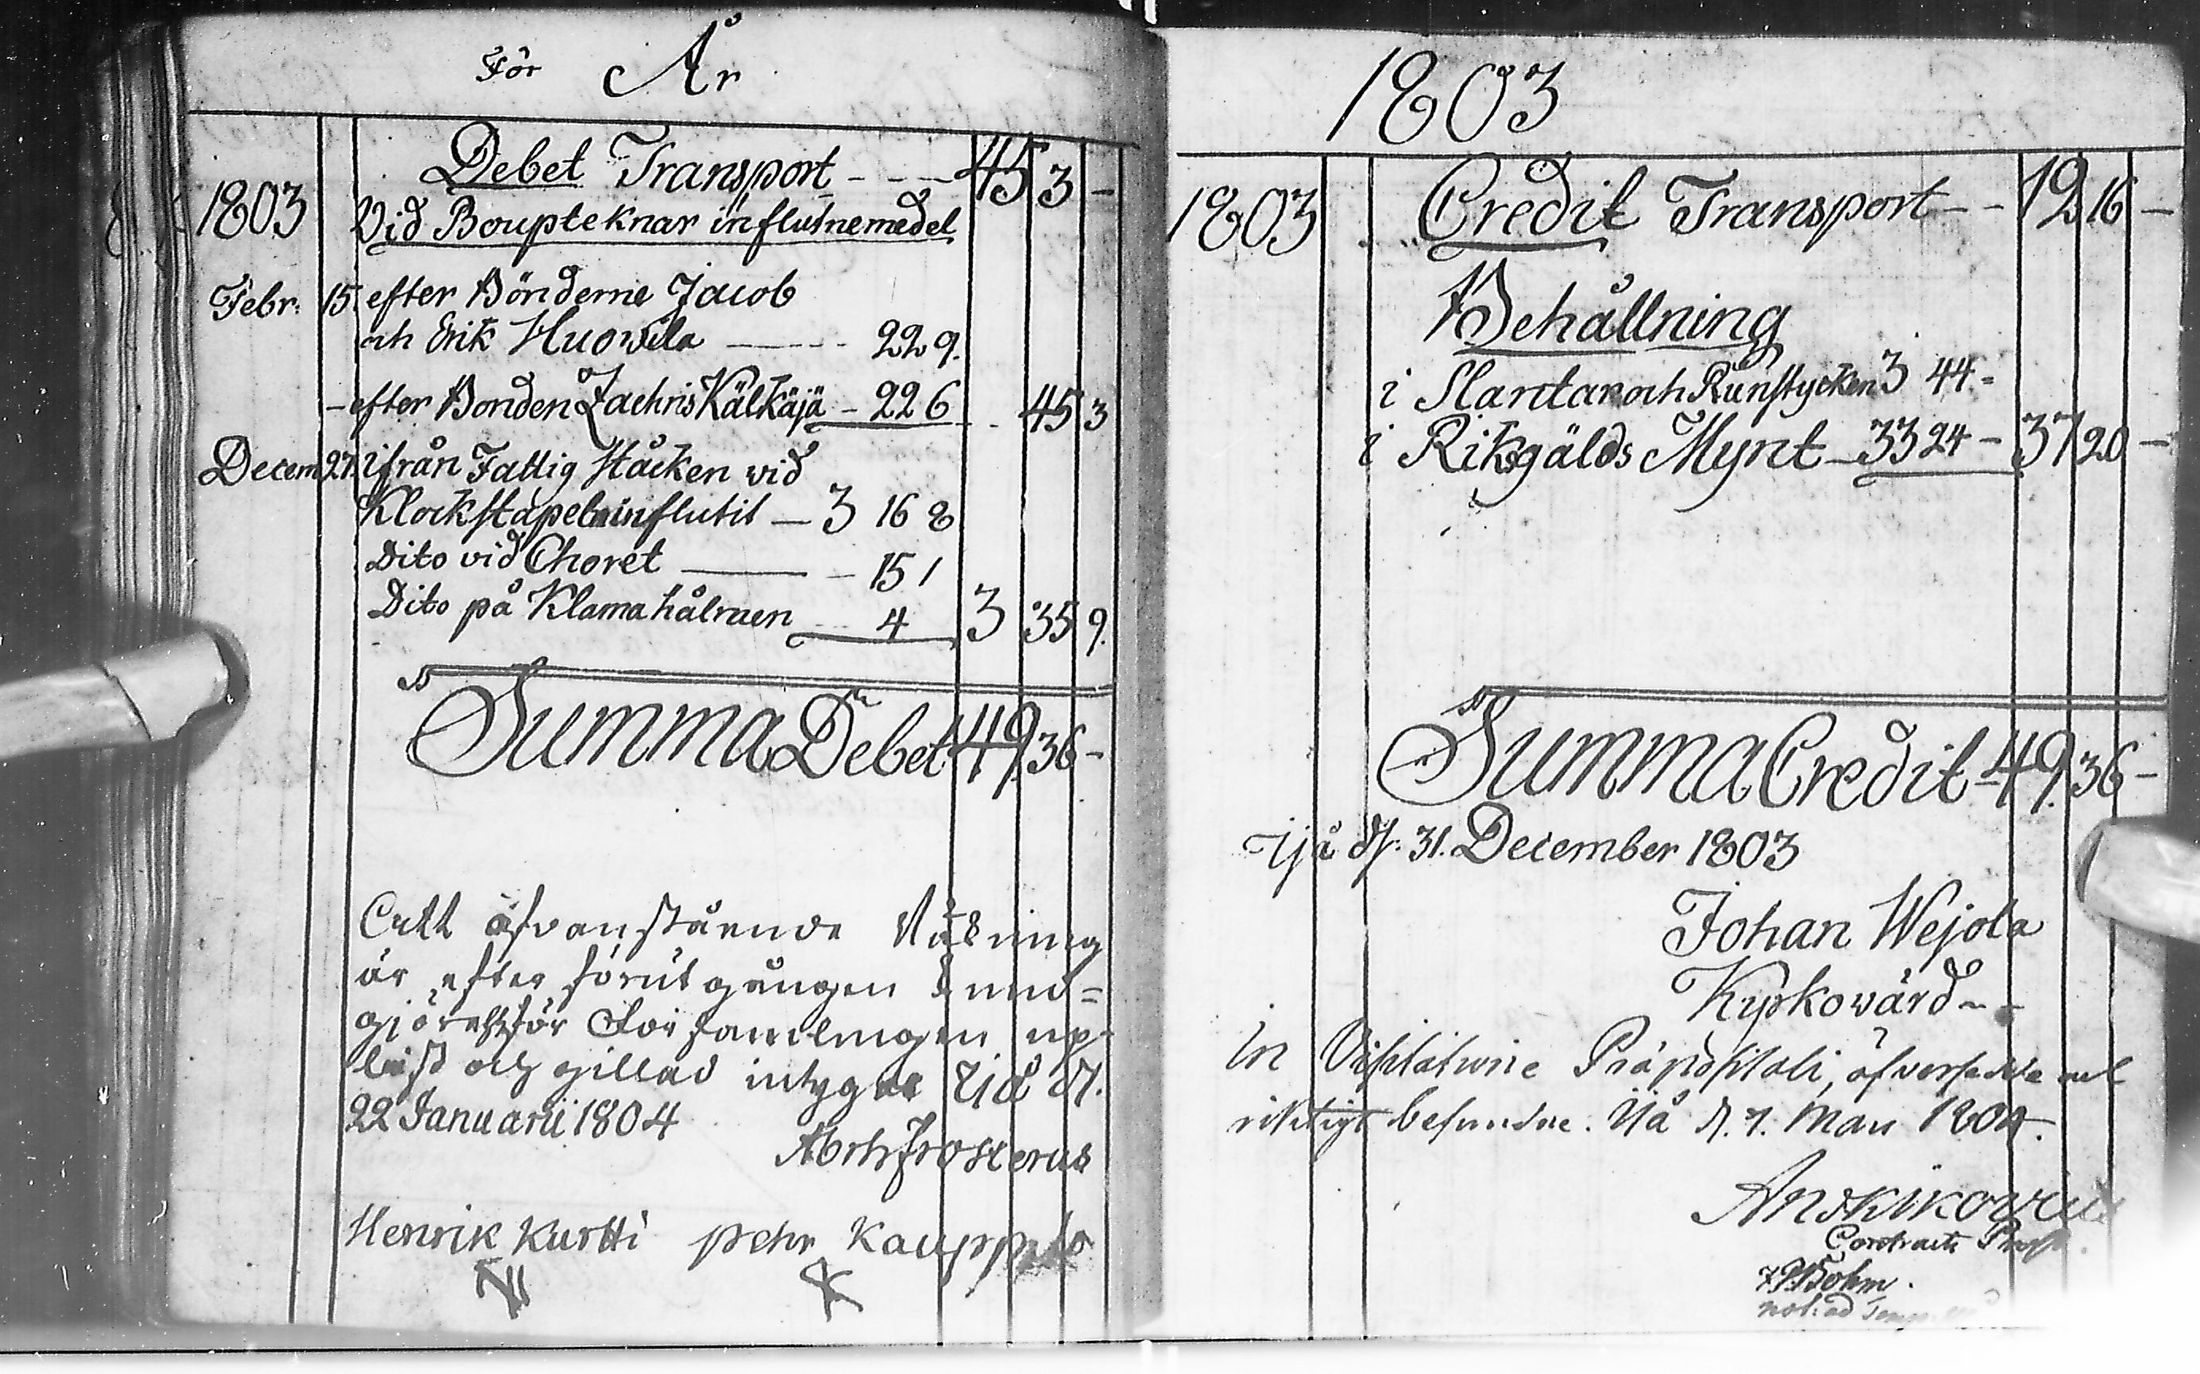 För År
Debet Transport - - - 45 3 -
1803 Vid Boupteknar influtne medel
Febr: 15. efter Bönderne Jacob
och Erik Huovila - - - 22 9.
- efter Bonden Zachris Kälkäjä - 22 6 - - 45 3
Decem 27. ifrån Fattig Stäcken vid
Klockstapeln influtit - 3 16 8
Dito vid Choret - 15 1
Dito på Klamahålmen - 4 3 35 9.
Summa Debet 49. 36 -
Att ofvanstående Räkning
är efter förut gången kund=
gjörelse för Församlingen up-
läst och gillad intygar Ijå d.
22 Januarii 1804
Abrh Frosterus
Henrik Kurtti pehr Kauppila
1803
1803 Credit Transport - - 12 16 -
Behållning
i Slantar och Runstycken 3 44 -
i Riksgälds Mynt - 33 24 - 37 20 -
Summa Credit - 49. 36 -
Ijå d. 31. December 1803
Johan Wejola
Kyrkovärd - -
In Visitatione Præpositali, öfversedde och
riktigt befundne. Ijå d. 7. Mars 1804.
Contracts Prost
Bohm.
not: ad